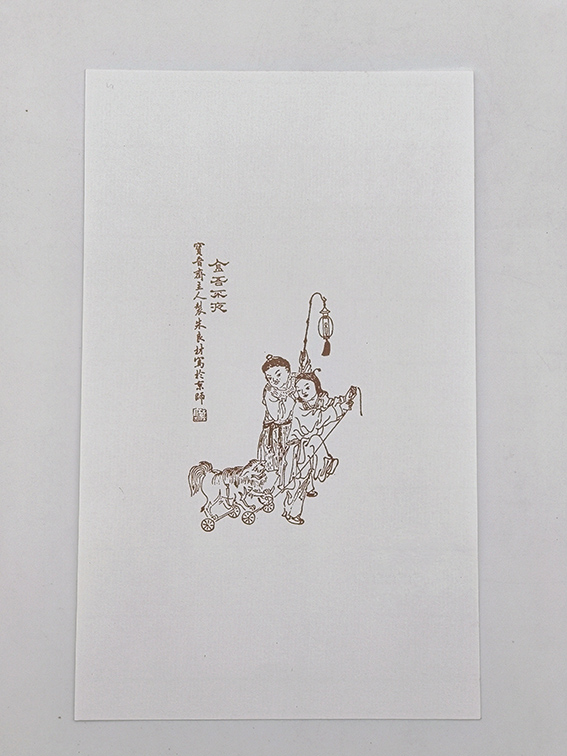 金吾不夜
寶晉齋主人製朱良材寫於京師